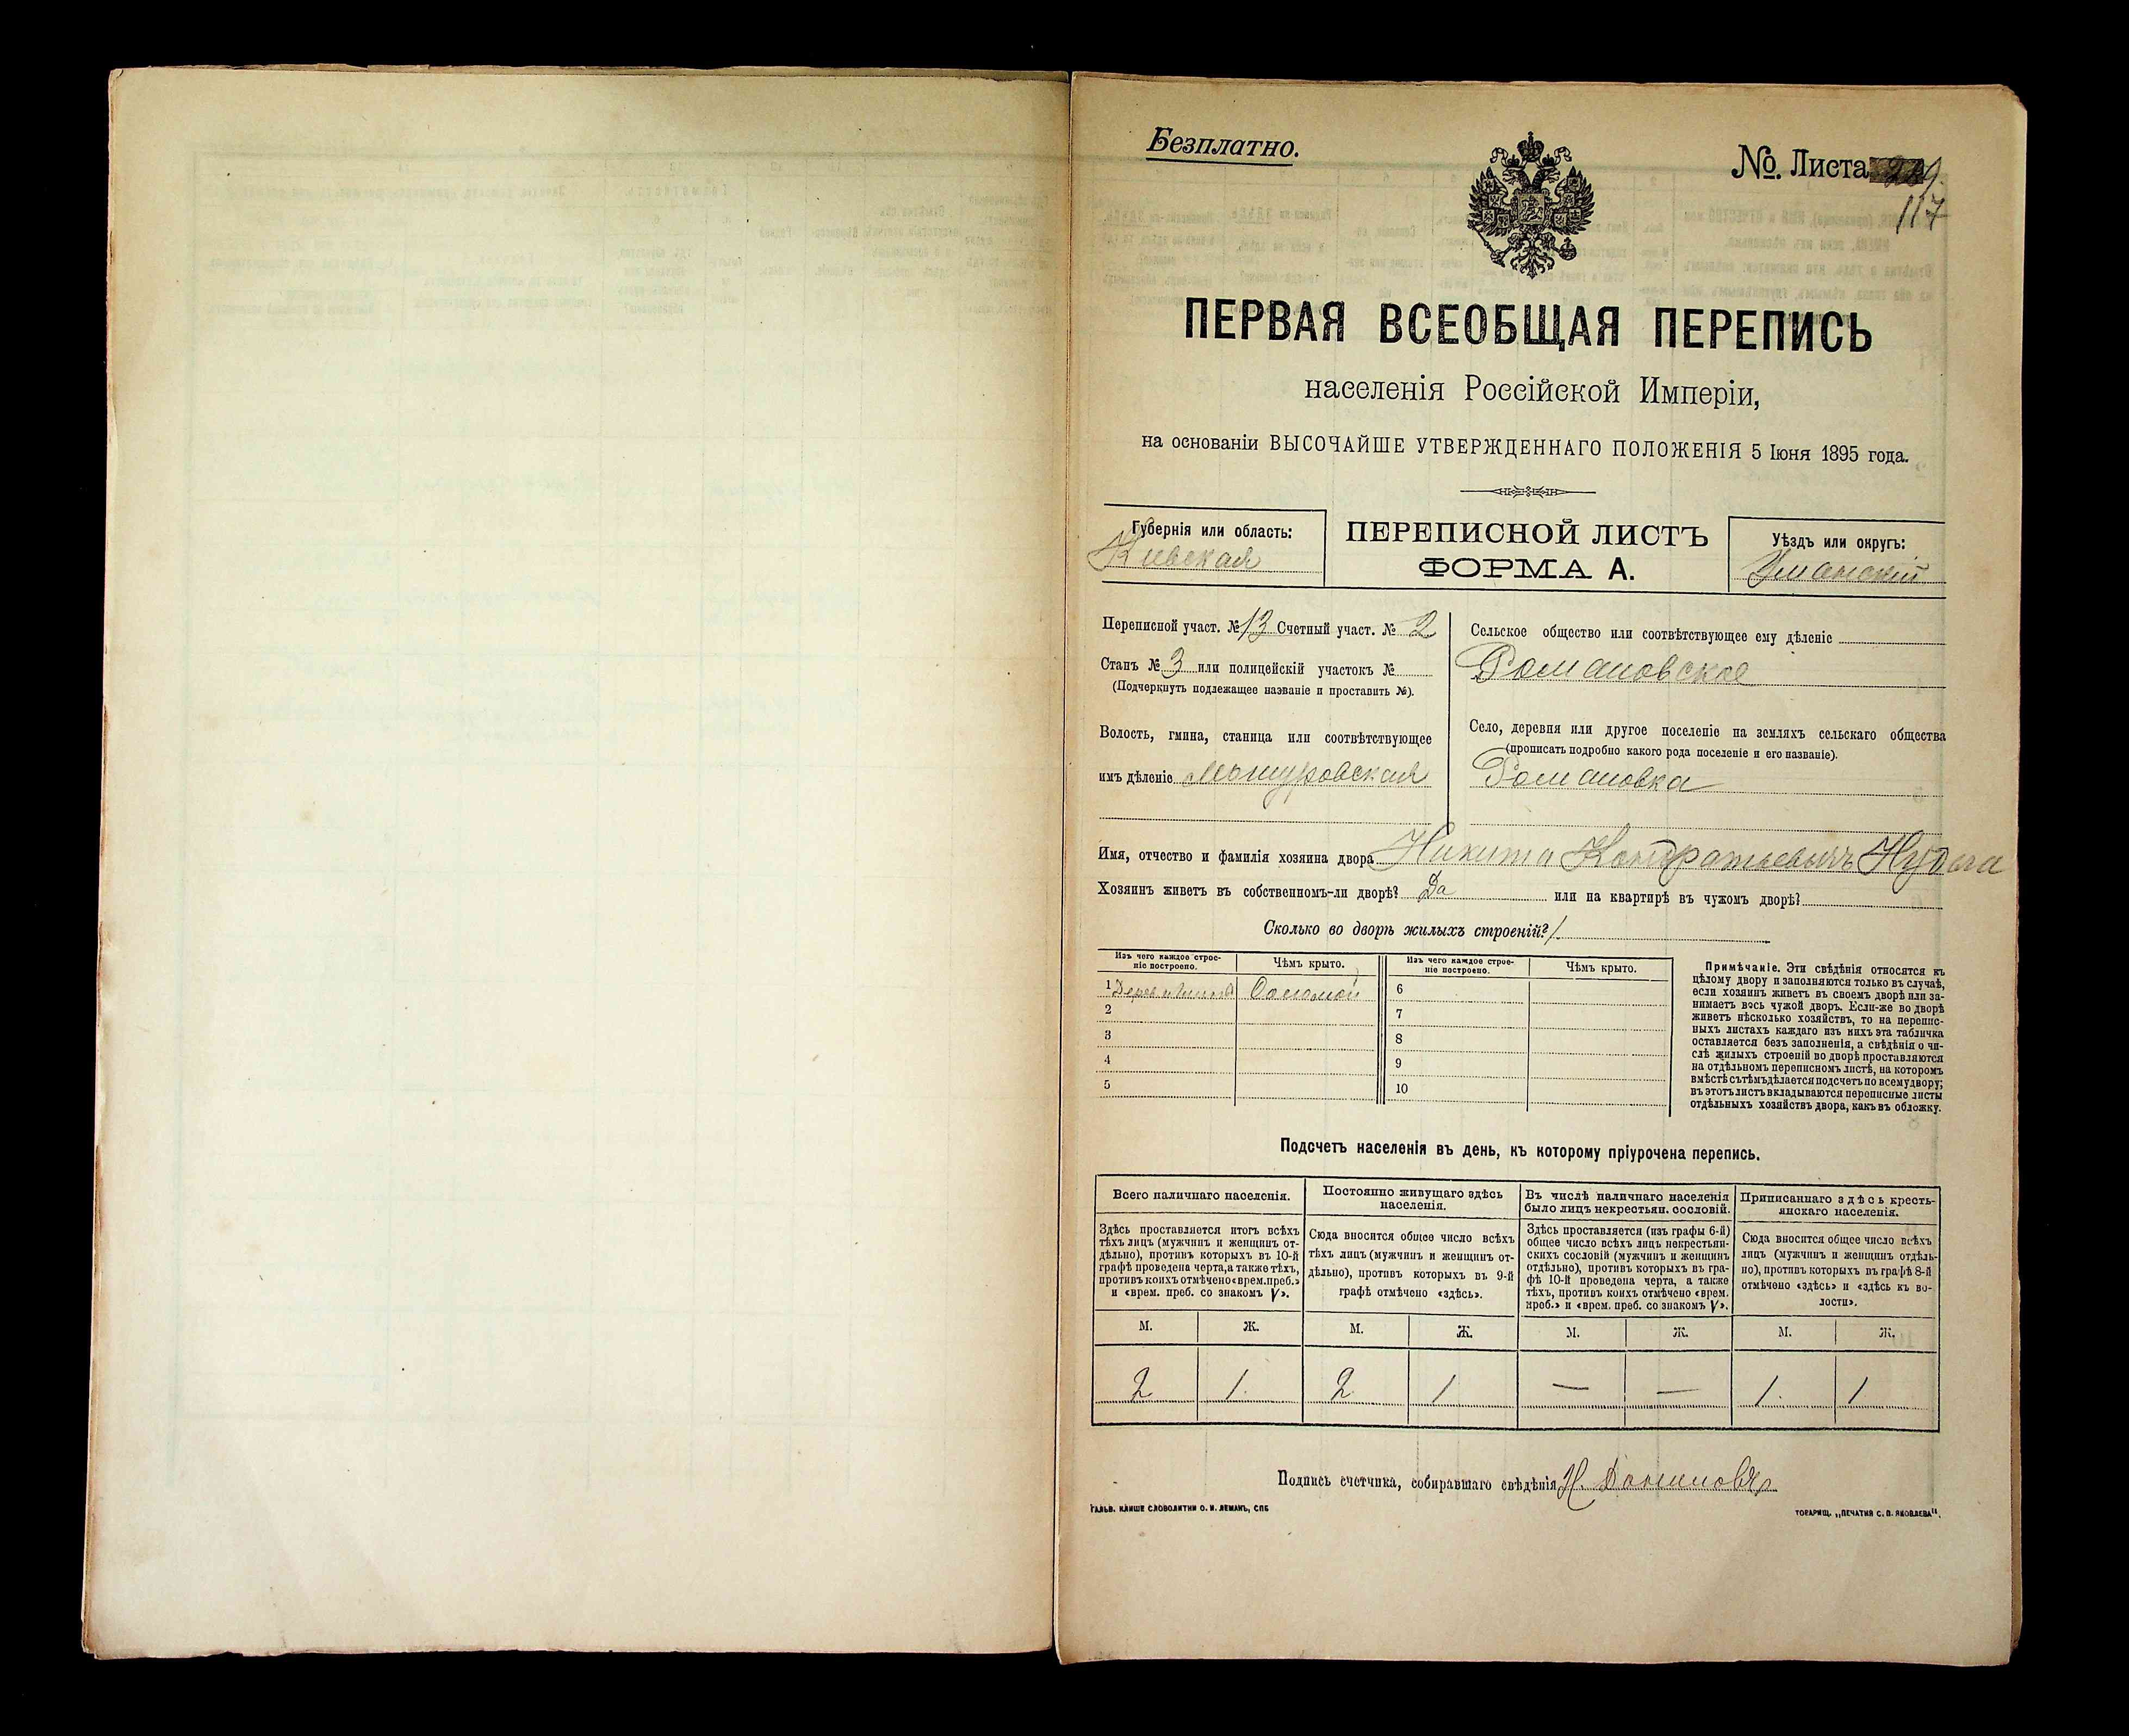 Безплатно.
№. Листа
117
ПЕРВАЯ ВСЕОБЩАЯ ПЕРЕПИСЬ
населенія Россійской Имперіи,
на основаніи ВЫСОЧАЙШЕ УТВЕРЖДЕННАГО ПОЛОЖЕНІЯ 5 Іюня 1895 года.
Губернія или область:
Киевская
ПЕРЕПИСНОЙ ЛИСТЪ
ФОРМА А.
Уѣздъ или округъ:
Уманскій
Переписной участ. № 13 Счетный участ. № 2
Станъ № 3 или полицейскій участокъ №
(Подчеркнуть подлежащее названіе и проставить №).
Волость, гмина, станица или соотвѣтствующее
имъ дѣленіе
Сельское общество или соотвѣтствующее ему дѣленіе
Романовское
Село, деревня или другое поселеніе на земляхъ сельскаго общества
(прописать подробно какого рода поселеніе и его названіе).
Романовка
Имя, отчество и фамилія хозяина двора Никита Кондратьевичъ
Хозяинъ живетъ въ собственномъ-ли дворѣ? Да или на квартирѣ въ чужомъ дворѣ?
Сколько во дворѣ жилыхъ строеній? 1
Изъ чего каждое строе-
ніе построено.
Чѣмъ крыто.
1
Соломой
2
3
4
5
Изъ чего каждое строе-
ніе построено.
Чѣмъ крыто.
6
7
8
9
10
Примѣчаніе. Эти свѣдѣнія относятся къ
цѣлому двору и заполняются только въ случаѣ,
если хозяинъ живетъ въ своемъ дворѣ или за-
нимаетъ весь чужой дворъ. Если-же во дворѣ
живетъ нѣсколько хозяйствъ, то на перепис-
ныхъ листахъ каждаго изъ нихъ эта табличка
оставляется безъ заполненія, а свѣдѣнія о чи-
слѣ жилыхъ строеній во дворѣ проставляются
на отдѣльномъ переписномъ листѣ, на которомъ
вмѣстѣ съ тѣмъ дѣлается подсчетъ по всему двору;
въ этотъ листъ вкладываются переписные листы
отдѣльныхъ хозяйствъ двора, какъ въ обложку.
Подсчетъ населенія въ день, къ которому пріурочена перепись.
Всего наличнаго населенія.
Здѣсь проставляется итогъ всѣхъ
тѣхъ лицъ (мужчинъ и женщинъ от-
дѣльно), противъ которыхъ въ 10-й
графѣ проведена черта, а также тѣхъ,
противъ коихъ отмѣчено «врем. преб.»
и «врем. преб. со знакомъ V».
Постоянно живущаго здѣсь
населенія.
Сюда вносится общее число всѣхъ
тѣхъ лицъ (мужчинъ и женщинъ от-
дѣльно), противъ которыхъ въ 9-й
графѣ отмѣчено «здѣсь».
Въ числѣ наличнаго населенія
было лицъ некрестьян. сословій.
Здѣсь проставляется (изъ графы 6-й)
общее число всѣхъ лицъ некрестьян-
скихъ сословій (мужчинъ и женщинъ
отдѣльно), противъ которыхъ въ гра-
фѣ 10-й проведена черта, а также
тѣхъ, противъ коихъ отмѣчено «врем.
преб.» и «врем. преб. со знакомъ V».
Приписаннаго здѣсь кресть-
янскаго населенія.
Сюда вносится общее число всѣхъ
лицъ (мужчинъ и женщинъ отдѣль-
но), противъ которыхъ въ графѣ 8-й
отмѣчено «здѣсь» и «здѣсь къ во-
лости».
М. Ж. М. Ж. М. Ж. М. Ж.
2 1 2 1 — — 1 1
Подпись счетчика, собиравшаго свѣдѣнія
ГАЛЬВ. КЛИШЕ СЛОВОЛИТНИ О. И. ЛЕМАНЪ, СПБ
ТОВАРИЩ. „ПЕЧАТНЯ С. П. ЯКОВЛЕВА".